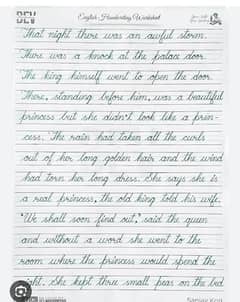 DEV English Handwriting Worksheet
That night there was an awful storm.
There was a knock at the palace door.
The king himself went to open the door.
There, standing before him, was a beautiful
princess but she didn't look like a prin-
cess. The rain had taken all the curls
out of her long golden hair and the wind
had torn her long dress. She says she is
a real princess, the old king told his wife.
'We shall soon find out,' said the queen
and without a word she went to the
room where the princess would spend the
night. She kept three small peas on the bed
Sanjay King